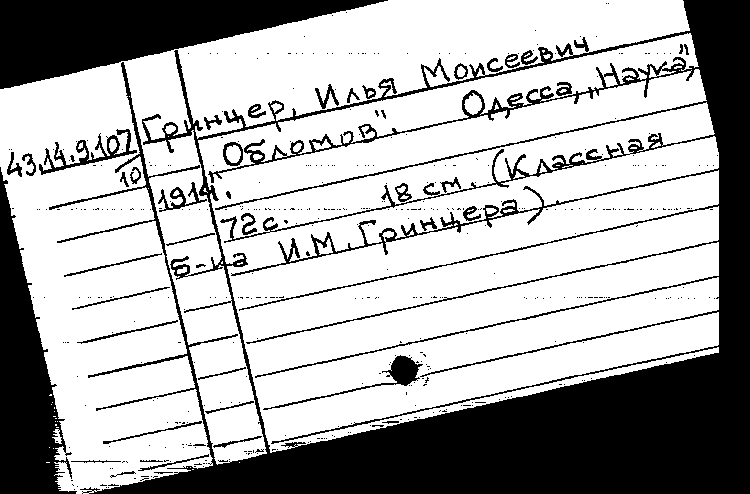 Гринцер, Илья Моисеевич
43.14.9.107/10
„Обломов". Одесса, „Наука",
1914.
72 с. 18 см. (Классная
б-ка И.М. Гринцера).